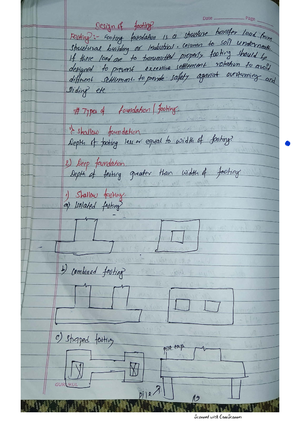 Date Page
Design of footing
Footing :- footing foundation is a structure transfer load from
structural building or individual column to soil underneath
If these load are to transmitted properly footing should be
designed to prevent excessive settlement rotation to avoid
different settlement to provide safety against overturning and
sliding etc
Types of foundation / footing
Shallow foundation
Depth of footing less or equal to width of footing
2) Deep foundation
Depth of footing greater than width of footing
1) Shallow footing
a) Isolated footing
b) Combined footing
c) Strapped footing
pile
Scanned with CamScanner